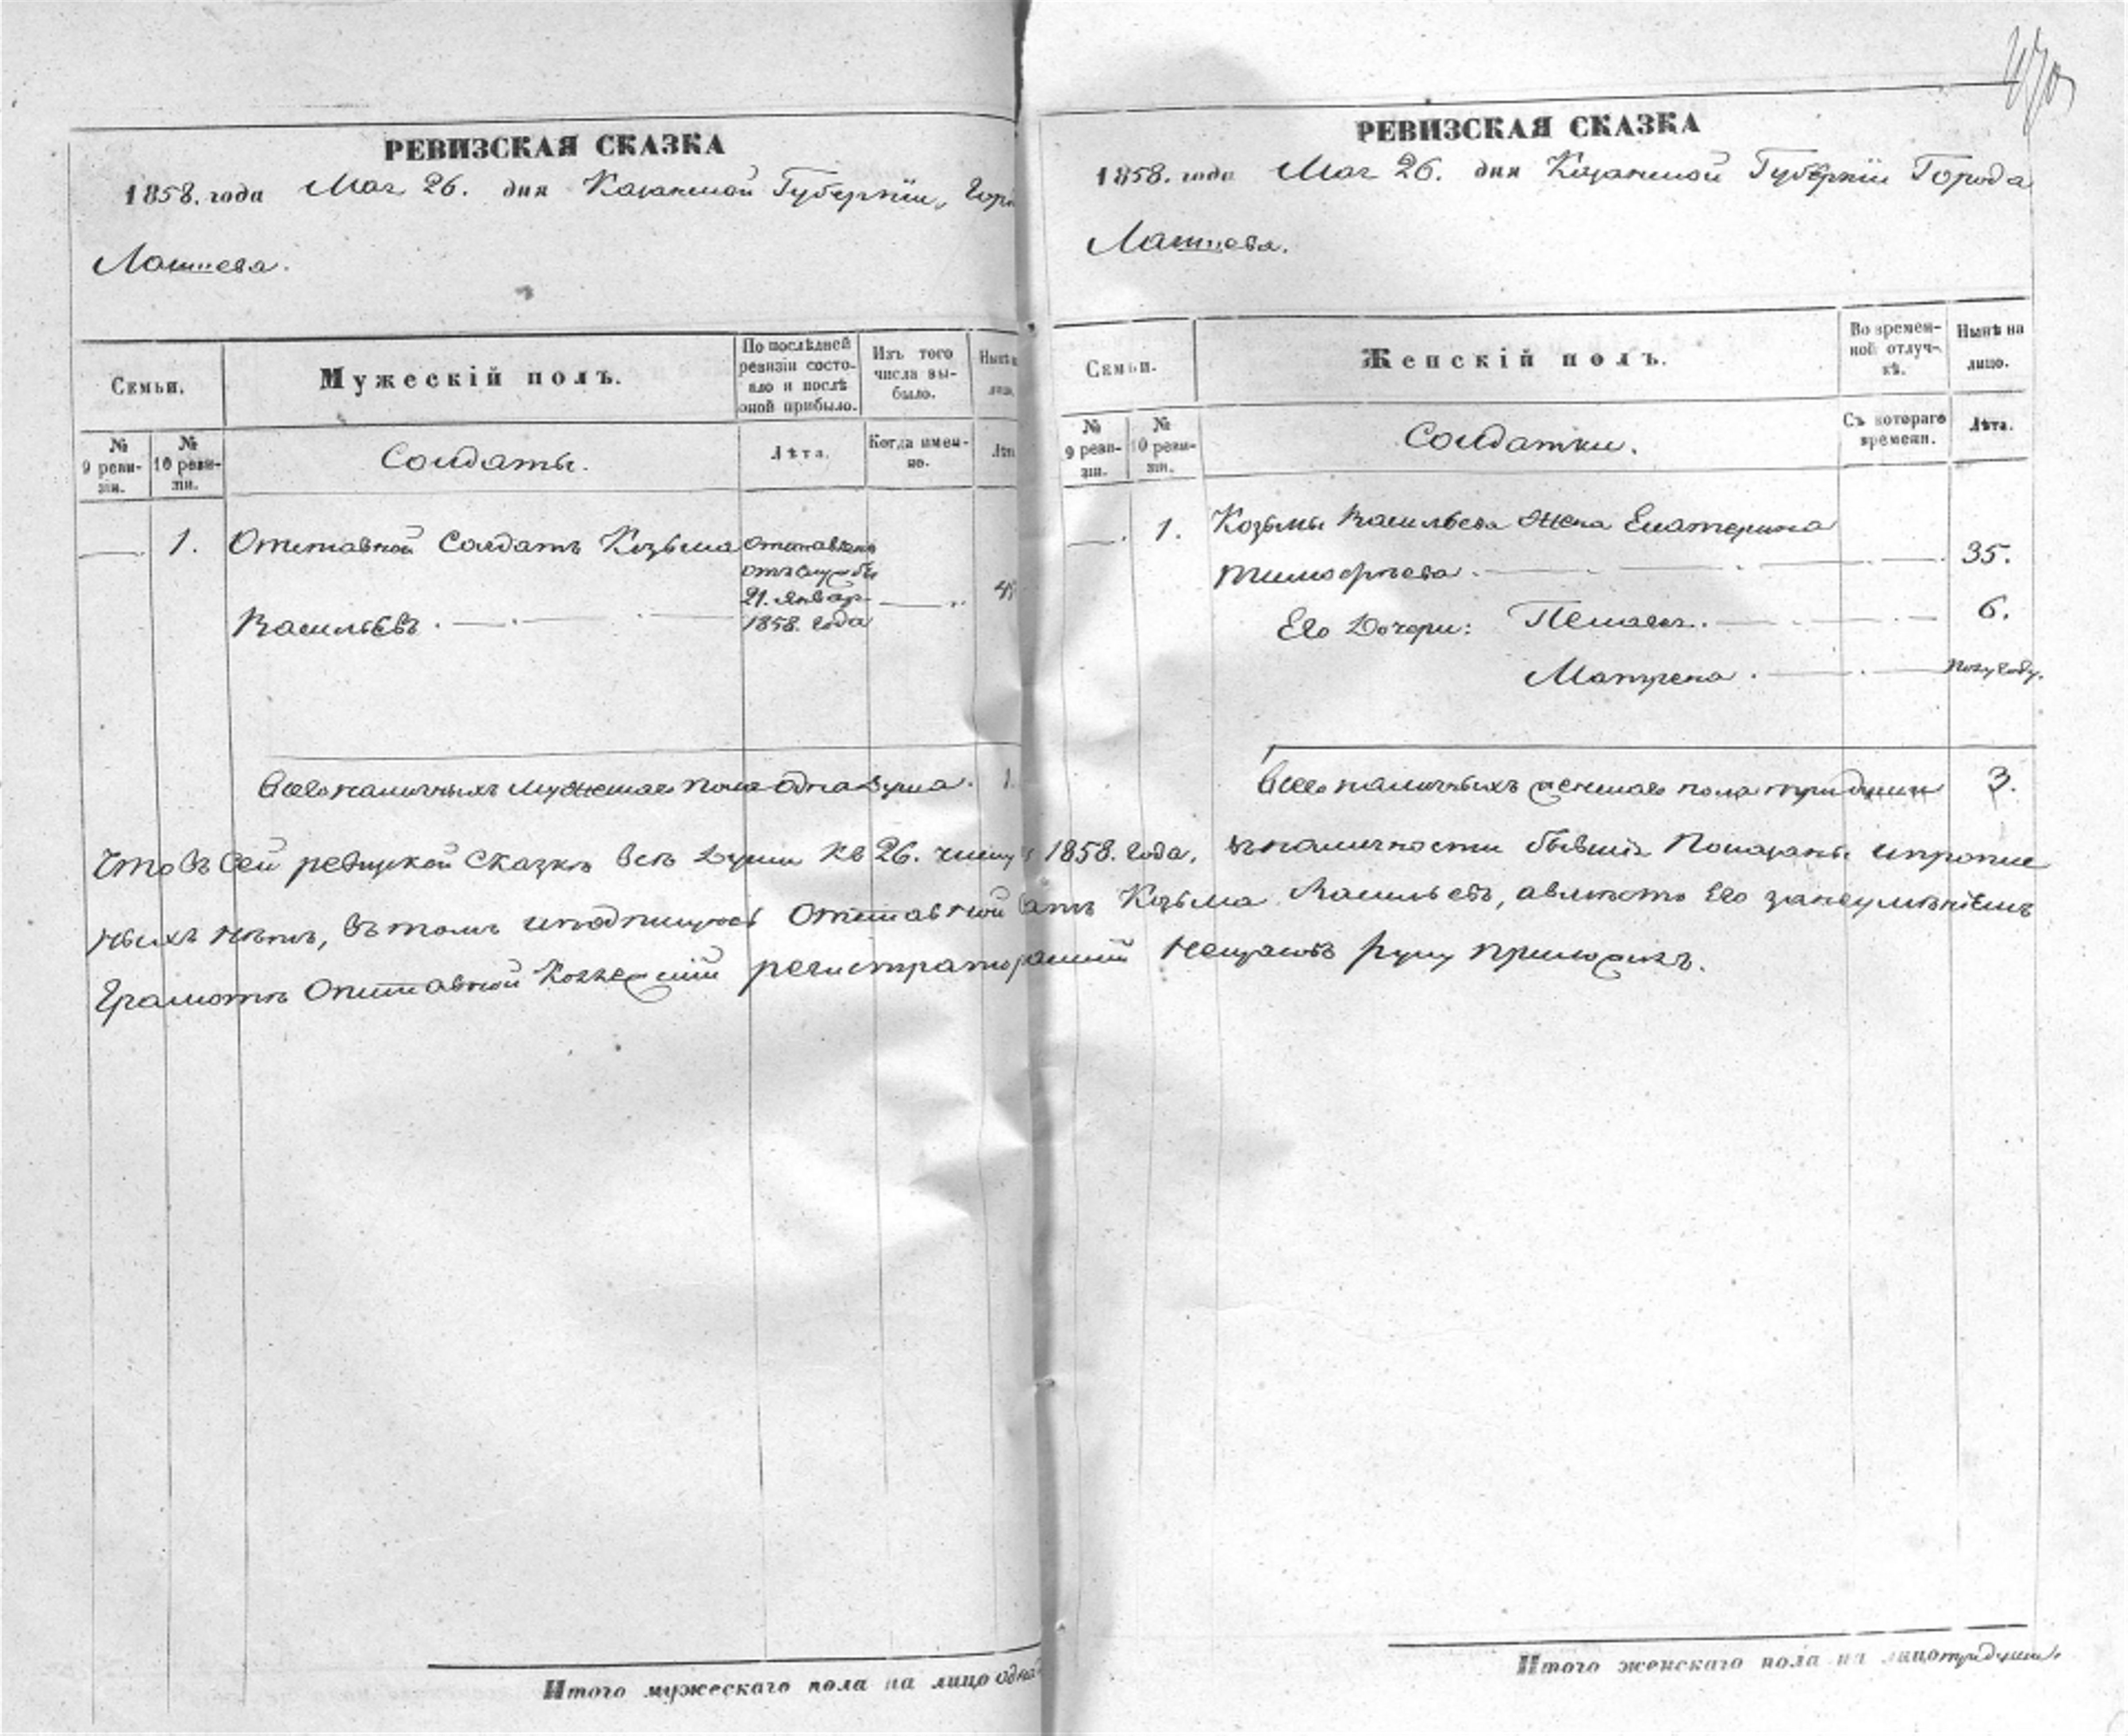 РЕВИЗСКАЯ СКАЗКА
1858. года Мая 26. дня Казанской Губерніи, Гор
Лаишева.
Семьи.
Мужескій полъ.
По послѣдней ревизіи состояло и послѣ оной прибыло.
Изъ того числа выбыло.
Нынѣ
лицо.
№ 9 ревизіи.
№ 10 ревизіи.
Солдаты.
Лѣта.
Когда именно.
Лѣт
1. Отставной Солдатъ Козьма
Васильевъ.
Отставленъ
отъ службы
21. Январ.
1858. года
Всего наличныхъ мужескаго пола одна душа. 1.
Итого мужескаго пола на лицо одна
РЕВИЗСКАЯ СКАЗКА
1858. года Мая 26. дня Казанской Губерніи Города
Лаишева.
Семьи.
Женскій полъ.
Во временной отлучкѣ.
Нынѣ на лицо.
№ 9 ревизіи.
№ 10 ревизіи.
Солдатки.
Съ котораго времени.
Лѣта.
1. Козьмы Васильева Жена Екатерина
Тимофѣева. 35.
Его Дочери: Пелагея. 6.
Матрена. полугоду.
Всего наличныхъ женскаго пола три души 3.
Что въ сей ревизкой сказкѣ всѣ Души къ 26. числу 1858. года, въ наличности бывшія Показаны и пропис
ныхъ нѣтъ, въ томъ и подпишуюсь Отставной Козьма Васильевъ, а вмѣсто Его за неумѣніемъ
Грамотѣ Отставной Коллежскій регистраторъ руку приложилъ.
Итого женскаго пола на лицо три души.